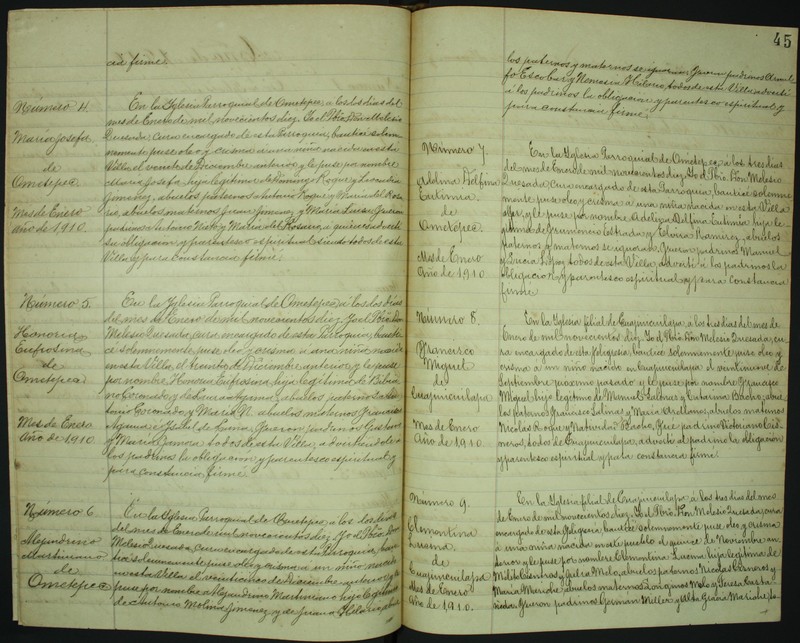 cia firmé.
Número 4.
María Josefa
de
Ometepec.
Mes de Enero
año de 1910.
En la Iglesia Parroquial de Ometepec a los dos días del
mes de Enero de mil novecientos diez. Yo el Pbro. Don Melesio
Quesada, Cura encargado de esta Parroquia, bauticé solem-
nemente puse oleo y crisma a una niña nacida en esta
Villa, el veinte de Diciembre anterior y le puse por nombre
María Josefa, hija legítima de Domingo Roque y
Jimenez, abuelos paternos Antonio Roque y María del Rosa-
rio, abuelos maternos Juan Jimenez y María Luisa. Fueron
padrinos Antonio y María del Rosario, a quienes advertí
su obligacion y parentesco espiritual siendo todos de esta
Villa, y para constancia firmé.
Número 5.
Honoria
Eufrosina
de
Ometepec.
Mes de Enero
Año de 1910
En la Iglesia Parroquial de Ometepec a los dos días
del mes de Enero de mil novecientos diez, Yo el Pbro. Don
Melesio Quesada, cura encargado de esta Parroquia, bauti-
cé solemnemente, puse oleo y crisma a una niña nacida
en esta Villa, el treinta de Diciembre anterior, y le puse
por nombre Honoria Eufrosina, hija legítima de
Coronado, y de abuelos paternos
Coronado y María N. abuelos maternos Francisco
é Isabel de Fueron padrinos
y María Zamora todos de esta Villa, advirtiendo a
los padrinos la obligación y parentesco espiritual y
para constancia firmé.
Número 6
Alejandrino
Martiniano
de
Ometepec
En la Iglesia Parroquial de Ometepec a los dos días
del mes de Enero de mil novecientos diez. Yo el Pbro. Don
Melesio Quesada, cura encargado de esta Parroquia, bau-
ticé solemnemente puse oleo y crisma a un niño nacido
en esta Villa, el veinticinco de Diciembre anterior y le
puse por nombre Alejandrino Martiniano hijo legítimo
de Antonio Molina Jimenez, y de Juana Hilario, abue-
45
los paternos y maternos se ignoran. Fueron padrinos Arnul-
fo Escobar y Nemesia Hilario, todos de esta Villa advertí
á los padrinos la obligación y parentesco espiritual, y
para constancia firmé.
Número 7
Adelina Delfina
Eutimia
de
Ometepec.
Mes de Enero
Año de 1910
En la Iglesia Parroquial de Ometepec, a los tres días
del mes de Enero de mil novecientos diez, Yo el Pbro. Don Melesio
Quesada, Cura encargado de esta Parroquia, bauticé solemne-
mente puse oleo, y crisma a una niña nacida en esta Villa
y le puse por nombre Adelina Delfina Eutimia, hija le-
gítima de Estrada y Eloisa Ramirez, abuelos
paternos y maternos se ignoran, fueron padrinos Manuel
y Lopez, todos de esta Villa, advertí á los padrinos la
obligación, y parentesco espiritual, y para constancia
firmé.
Número 8.
Francisco
Miguel
de
Cuajinicuilapa
Mes de Enero
Año de 1910.
En la Iglesia filial de Cuajinicuilapa, á los tres días del mes de
Enero de mil novecientos diez, Yo el Pbro. Don Melesio Quesada, cu-
ra encargado de esta feligresía, bauticé solemnemente puse oleo y
crisma á un niño nacido en Cuajinicuilapa el veintinueve de
Septiembre proximo pasado y le puse por nombre Francisco
Miguel, hijo legítimo de Manuel Salinas y Catarina Bacho; abue-
los paternos Francisco Salinas y María Arellano; abuelos maternos
Nicolas Roque y Natividad Bacho, fue padrino Victoriano Cis-
neros, todos de Cuajinicuilapa, advertí al padrino la obligación
y parentesco espiritual y para constancia firmé.
Número 9.
Clementina
Lucina
de
Cuajinicuilapa
Mes de Enero
Año de 1910.
En la Iglesia filial de Cuajinicuilapa, á los tres días del mes
de Enero de mil novecientos diez, Yo el Pbro. Don Melesio Quesada, cura
encargado de esta feligresía bauticé solemnemente puse oleo y crisma
á una niña nacida en este pueblo el quince de Noviembre an-
terior y le puse por nombre Clementina Lucina hija legítima de
Cisneros y Melo, abuelos paternos Nicolas Cisneros y
María abuelos maternos Melo y Teresa
Fueron padrinos German Miller y Alta Gracia